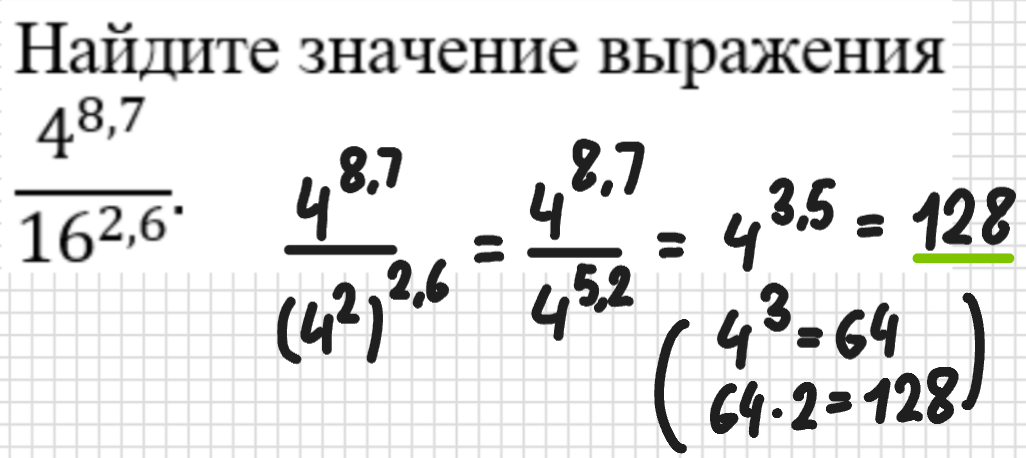 Найдите значение выражения
4^8,7 / 16^2,6.
4^8,7 / (4^2)^2,6 = 4^8,7 / 4^5,2 = 4^3,5 = 128
( 4^3 = 64
64 · 2 = 128 )